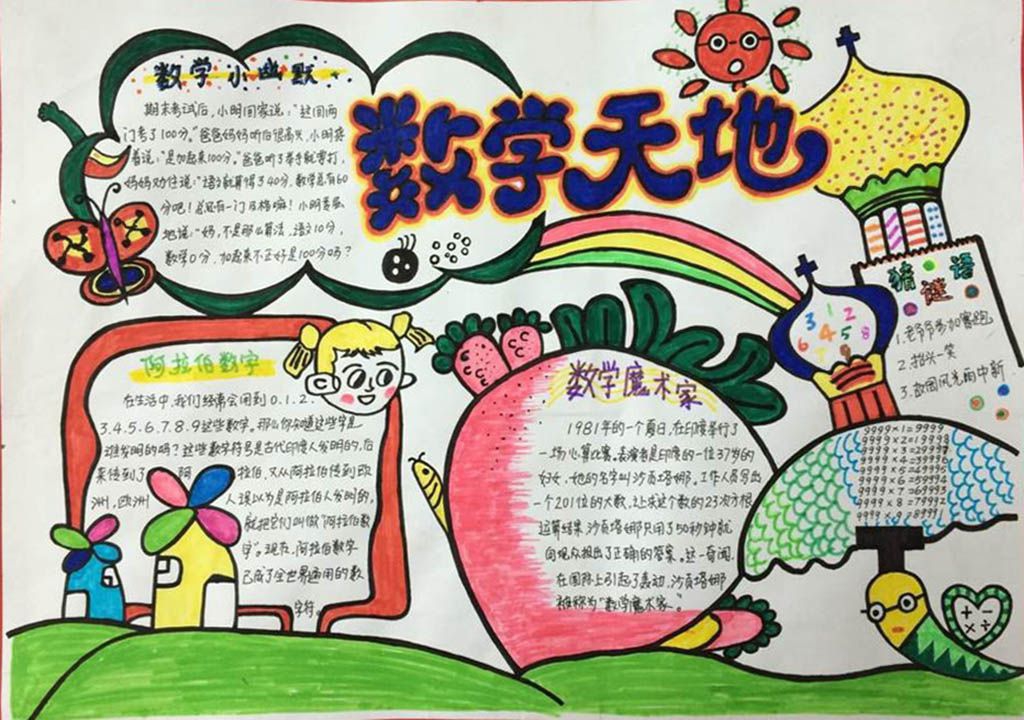 数学天地
数学小幽默
期末考试后，小明回家说："这回两
门考了100分。"爸爸妈妈听后很高兴，小明接
着说："是加起来100分。"爸爸听了举手就要打，
妈妈劝住说："语文就算得了40分，数学总有60
分吧！总有一门及格嘛！小明委屈
地说："妈，不是那么算法，语文10分，
数学0分，加起来不正好是100分吗？
阿拉伯数字
在生活中，我们经常会用到0.1.2.
3.4.5.6.7.8.9这些数字。那么你知道这些字是
谁发明的吗？这些数字符号是古代印度人发明的，后
来传到了阿拉伯，又从阿拉伯传到欧
洲，欧洲人误以为是阿拉伯人发明的，
就把它们叫做"阿拉伯数
字"。现在，阿拉伯数字
已成了全世界通用的数
字符。
数学魔术家
1981年的一个夏日，在印度举行了
一场心算比赛。表演者是印度的一位37岁的
妇女，她的名字叫沙贡塔娜。工作人员写出
一个201位的大数，让求这个数的23次方根
运算结果，沙贡塔娜只用了50秒钟就
向观众报出了正确的答案。这一奇闻，
在国际上引起了轰动，沙贡塔娜
被称为"数学魔术家"。
猜谜语
1.老爷爷参加赛跑
2.抬头一笑
3.故园风光雨中新
3 1 2
6 4 5 8
9999×1=9999
9999×2=19998
9999×3=29997
9999×4=39996
9999×5=49995
9999×6=59994
9999×7=69993
9999×8=79992
9999×9=89991
+ −
× ÷